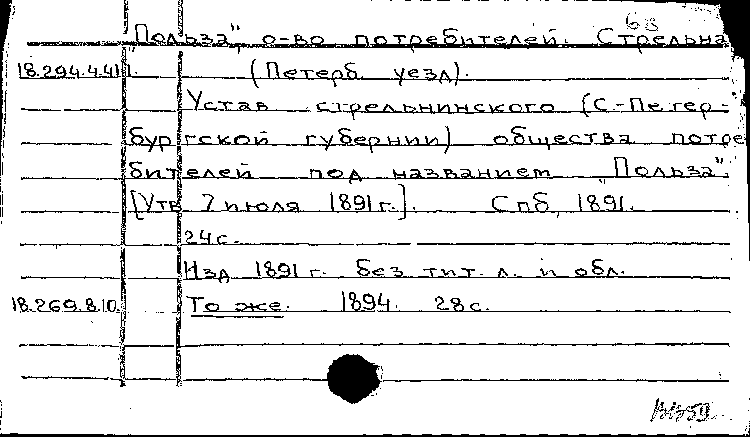 63
„Польза", о-во потребителей. Стрельна
18.294.4.41. (Петерб. уезд).
Устав стрельнинского (С-Петер-
бургской губернии) общества потре
бителей под названием „Польза".
[Утв 7 июля 1891 г.]. Спб, 1891.
24 с.
Изд 1891 г. без тит. л. и обл.
18.269.8.10. То же. 1894. 28 с.